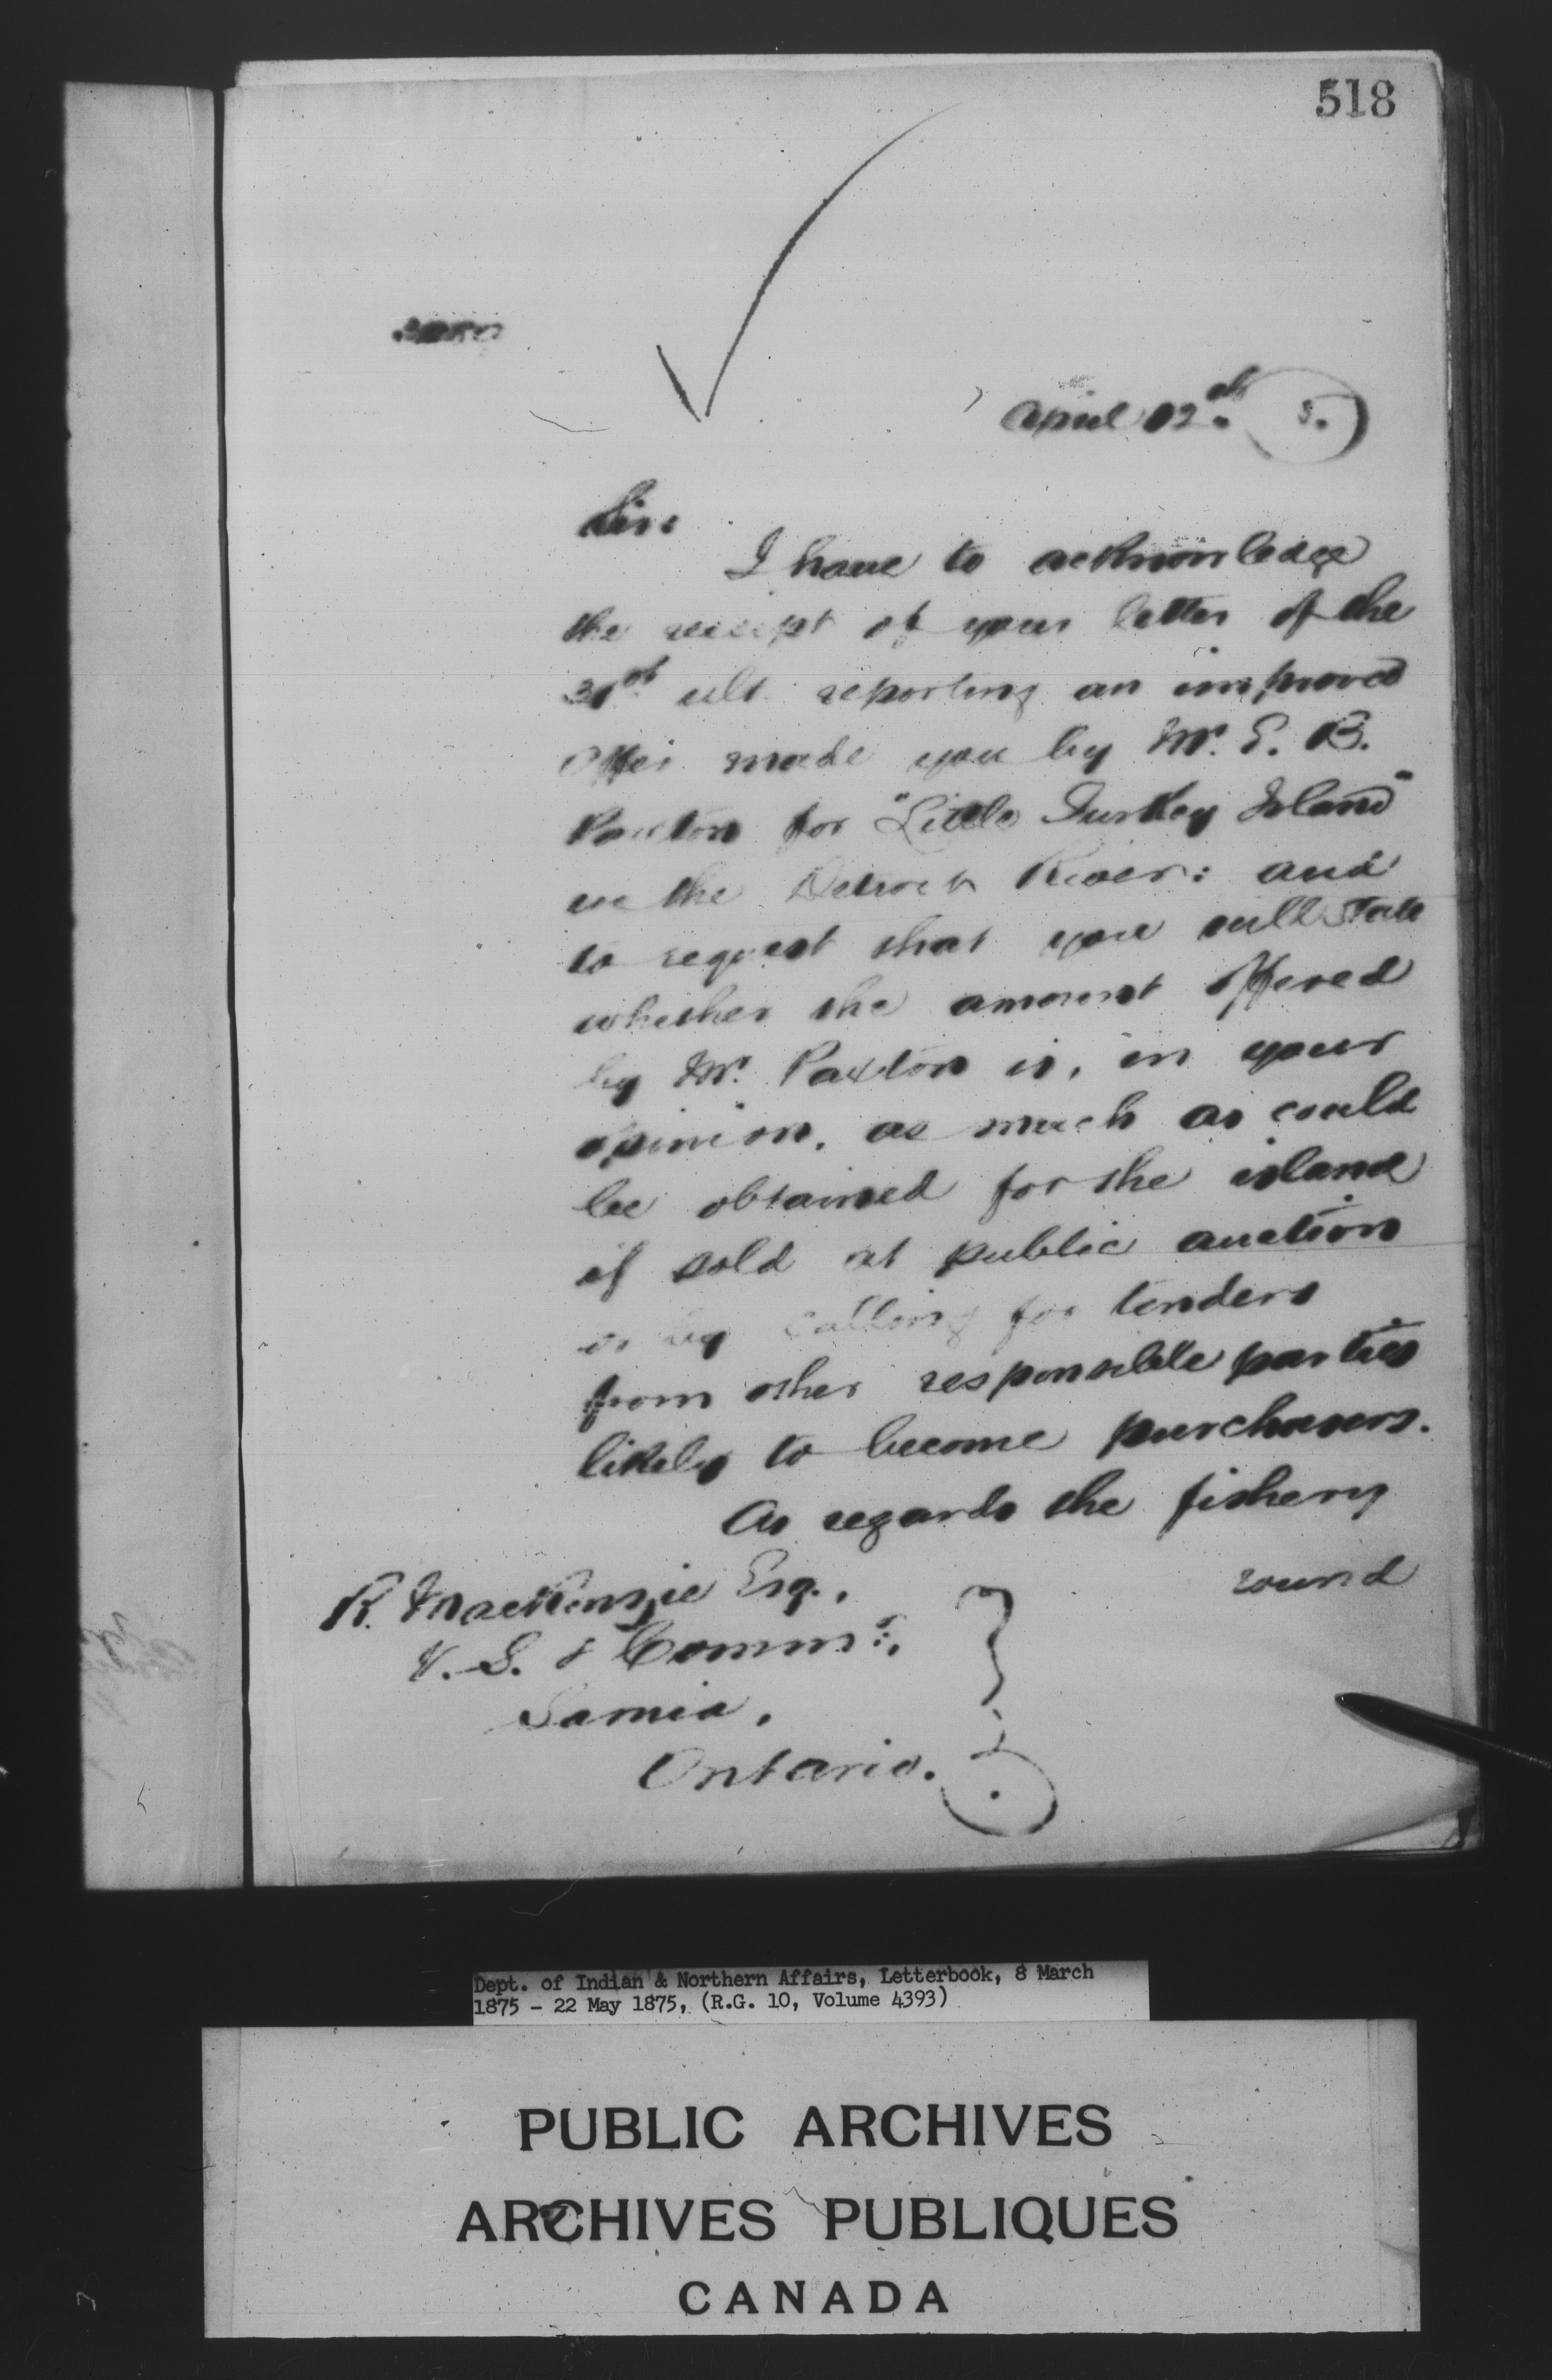 518
April 12th 5.
Sir:
I have to acknowledge
the receipt of your letter of the
31st ult. reporting an improved
offer made you by Mr. E. B.
Paxton for "Little Turkey Island"
in the Detroit River: and
to request that you will state
whether the amount offered
by Mr. Paxton is, in your
opinion, as much as could
be obtained for the island
if sold at public auction
or by calling for tenders
from other responsible parties
likely to become purchasers.
As regards the fishery
round
R. MacKenzie Esq.,
V. S. & Commr.,
Sarnia,
Ontario.
Dept. of Indian & Northern Affairs, Letterbook, 8 March
1875 - 22 May 1875, (R.G. 10, Volume 4393)
PUBLIC ARCHIVES
ARCHIVES PUBLIQUES
CANADA